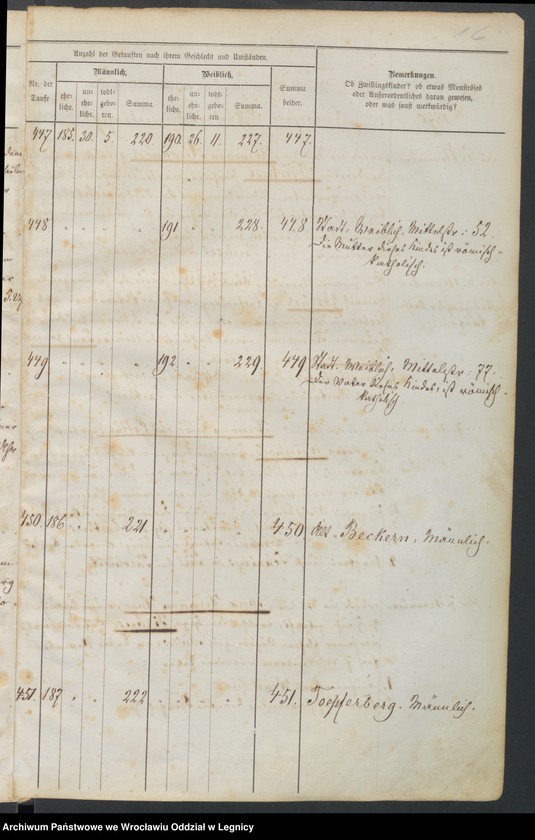 16
Anzahl der Getauften nach ihrem Geschlecht und Umständen.
Nr. der Taufe
Männlich.
ehe-liche. un-ehe-liche. todt-gebo-ren. Summa.
Weiblich.
ehe-liche. un-ehe-liche. todt-gebo-ren. Summa.
Summa beider.
Bemerkungen.
Ob Zwillingskinder? ob etwas Monströses
oder Außerordentliches daran gewesen,
oder was sonst merkwürdig?
447 185. 30. 5. 220. 190. 26. 11. 227. 447.
448 " " " " 191 " " 228. 448 Stadt. Weiblich. Mittelstr: 52.
Die Mutter dieses Kindes ist römisch
katholisch.
449 " " " " 192 " " 229. 449 Stadt. Weiblich. Mittelstr: 77.
Der Vater dieses Kindes, ist römisch
katholisch
450. 186 " " 221. " " " " 450. Beckern. Männlich.
451. 187 " " 222 " " " " 451. Toepferberg. Männlich.
Archiwum Państwowe we Wrocławiu Oddział w Legnicy